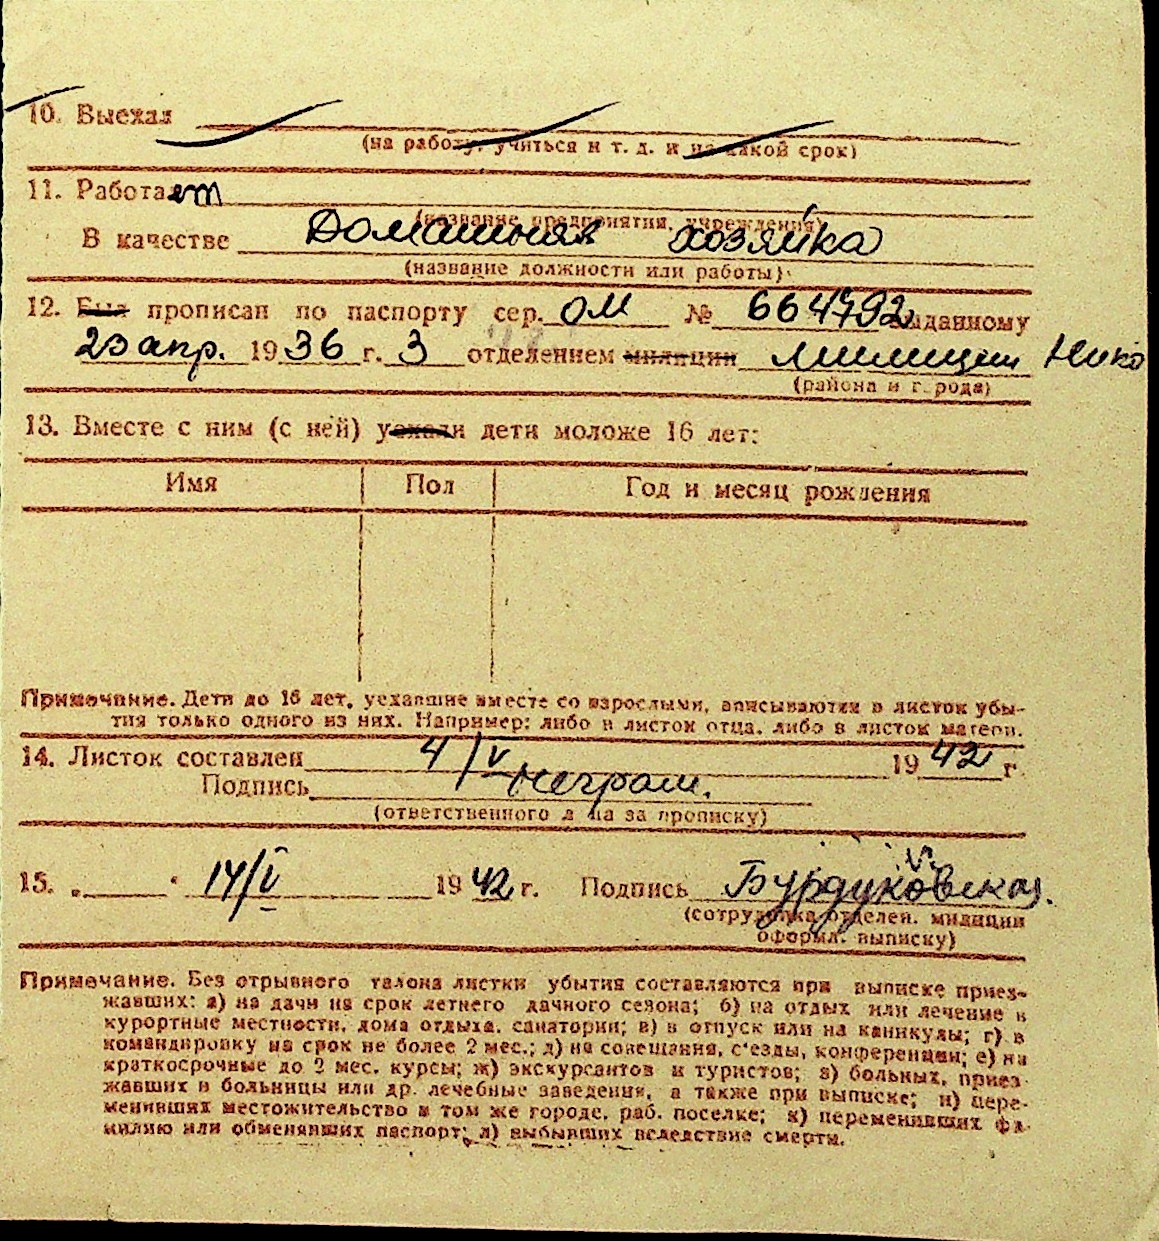 10. Выехал
(на работу, учиться и т. д. и на какой срок)
11. Работает
(название предприятия, учреждения)
В качестве Домашняя хозяйка
(название должности или работы)
12. Был прописан по паспорту сер. ОМ № 664792 выданному
23 апр. 1936 г. 3 отделением милиции милиции Нико
(района и города)
13. Вместе с ним (с ней) уехали дети моложе 16 лет:
Имя Пол Год и месяц рождения
Примечание. Дети до 16 лет, уехавшие вместе со взрослыми, вписываются в листок убы-
тия только одного из них. Например: либо в листок отца, либо в листок матери.
14. Листок составлен 4/V 1942 г.
Подпись неграм.
(ответственного лица за прописку)
15. „ “ 14/V 1942 г. Подпись Бурдуковская.
(сотрудника отделен. милиции
оформл. выписку)
Примечание. Без отрывного талона листки убытия составляются при выписке приез-
жавших: а) на дачи на срок летнего дачного сезона; б) на отдых или лечение в
курортные местности, дома отдыха, санатории; в) в отпуск или на каникулы; г) в
командировку на срок не более 2 мес.; д) на совещания, с'езды, конференции; е) на
краткосрочные до 2 мес. курсы; ж) экскурсантов и туристов; з) больных, приез-
жавших в больницы или др. лечебные заведения, а также при выписке; и) пере-
менивших местожительство в том же городе, раб. поселке; к) переменивших фа-
милию или обменявших паспорт; л) выбывших вследствие смерти.